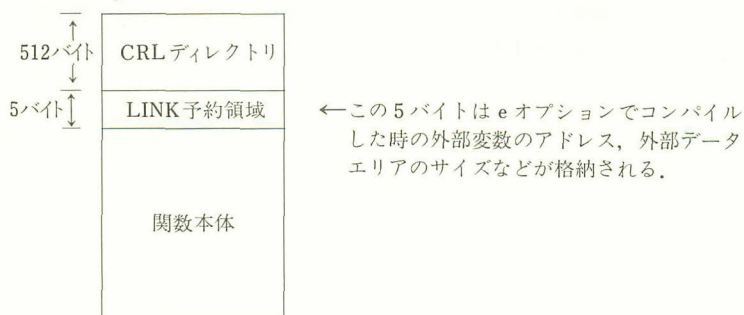 512バイト
CRLディレクトリ
5バイト
LINK予約領域
←この5バイトはeオプションでコンパイル
した時の外部変数のアドレス,外部データ
エリアのサイズなどが格納される.
関数本体